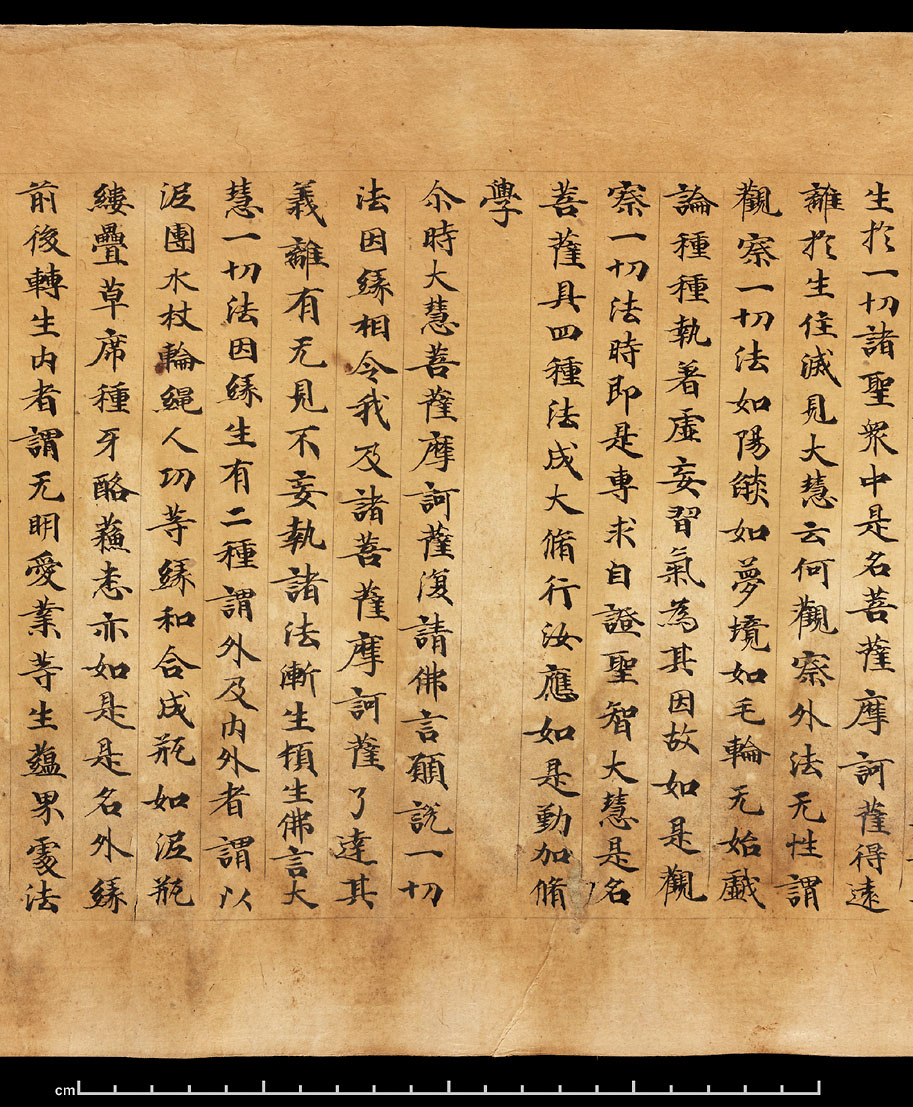 生於一切諸聖衆中是名菩薩摩訶薩得遠
離於生住滅見大慧云何觀察外法无性謂
觀察一切法如陽燄如夢境如毛輪无始戲
論種種執著虛妄習氣為其因故如是觀
察一切法時即是專求自證聖智大慧是名
菩薩具四種法成大脩行汝應如是勤加脩
學
尒時大慧菩薩摩訶薩復請佛言願說一切
法因緣相令我及諸菩薩摩訶薩了達其
義離有无見不妄執諸法漸生頓生佛言大
慧一切法因緣生有二種謂外及内外者謂以
泥團水杖輪繩人功等緣和合成瓶如泥瓶
縷疊草席種牙酪蘇悉亦如是是名外緣
前後轉生内者謂无明愛業等生蘊界處法